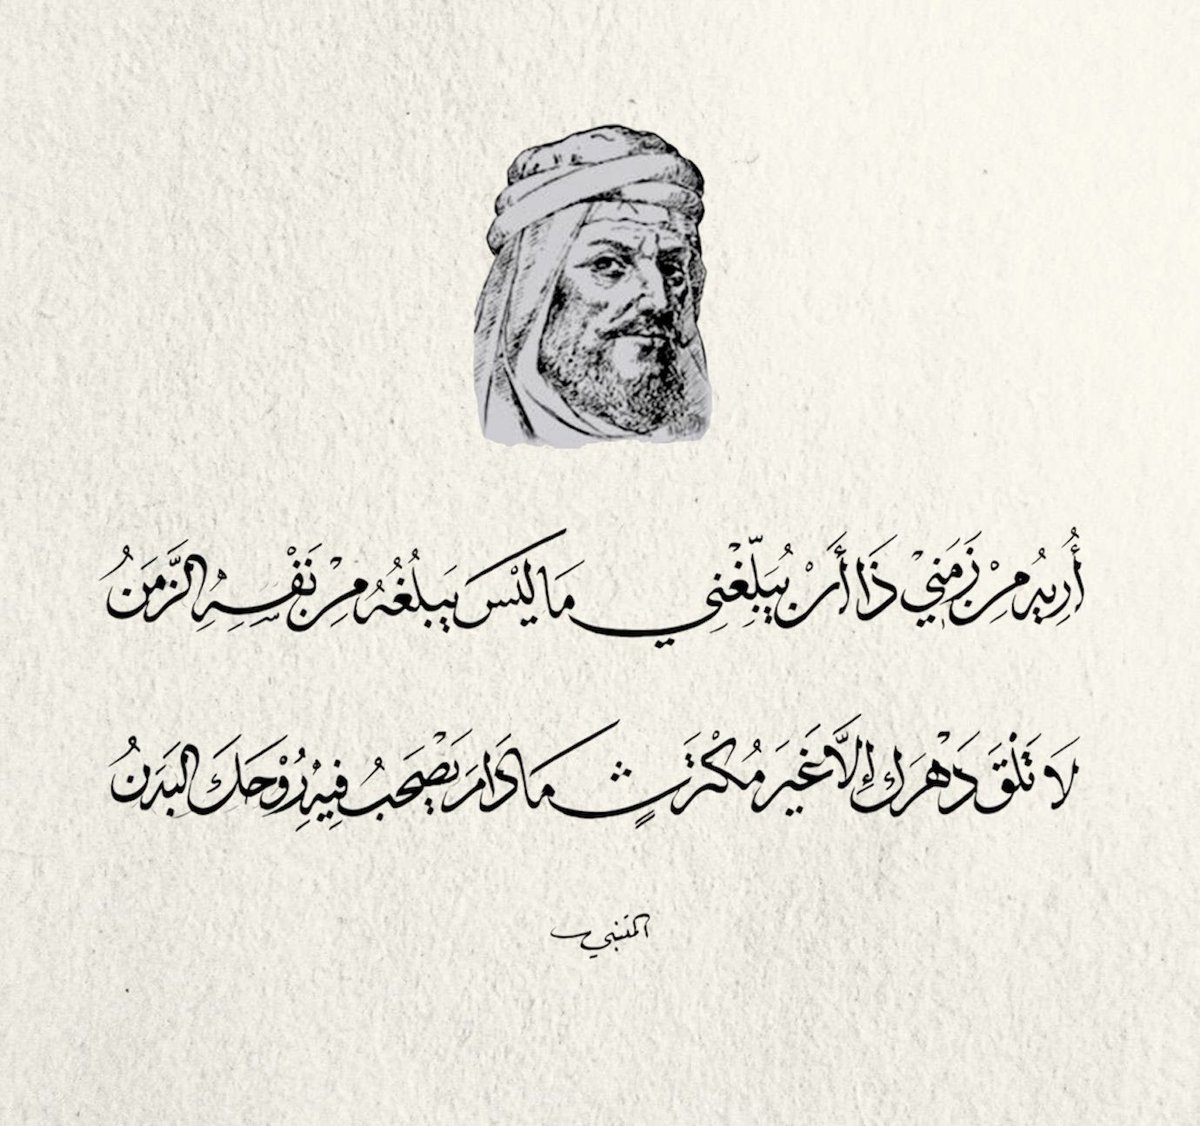 أُرِيدُ مِنْ زَمَنِيْ ذَا أَنْ يُبَلِّغْنِي مَا لَيْسَ يَبلُغُهُ مِنْ نَفْسِهِ الزَّمَنُ
لَا تَلْقَ دَهْرَكَ إِلَّا غَيَرَ مُكْتَرَثٍ مَا دَامَ يَصْحَبُ فِيْهِ رُوْحَكَ البَدَنُ
المتنبي